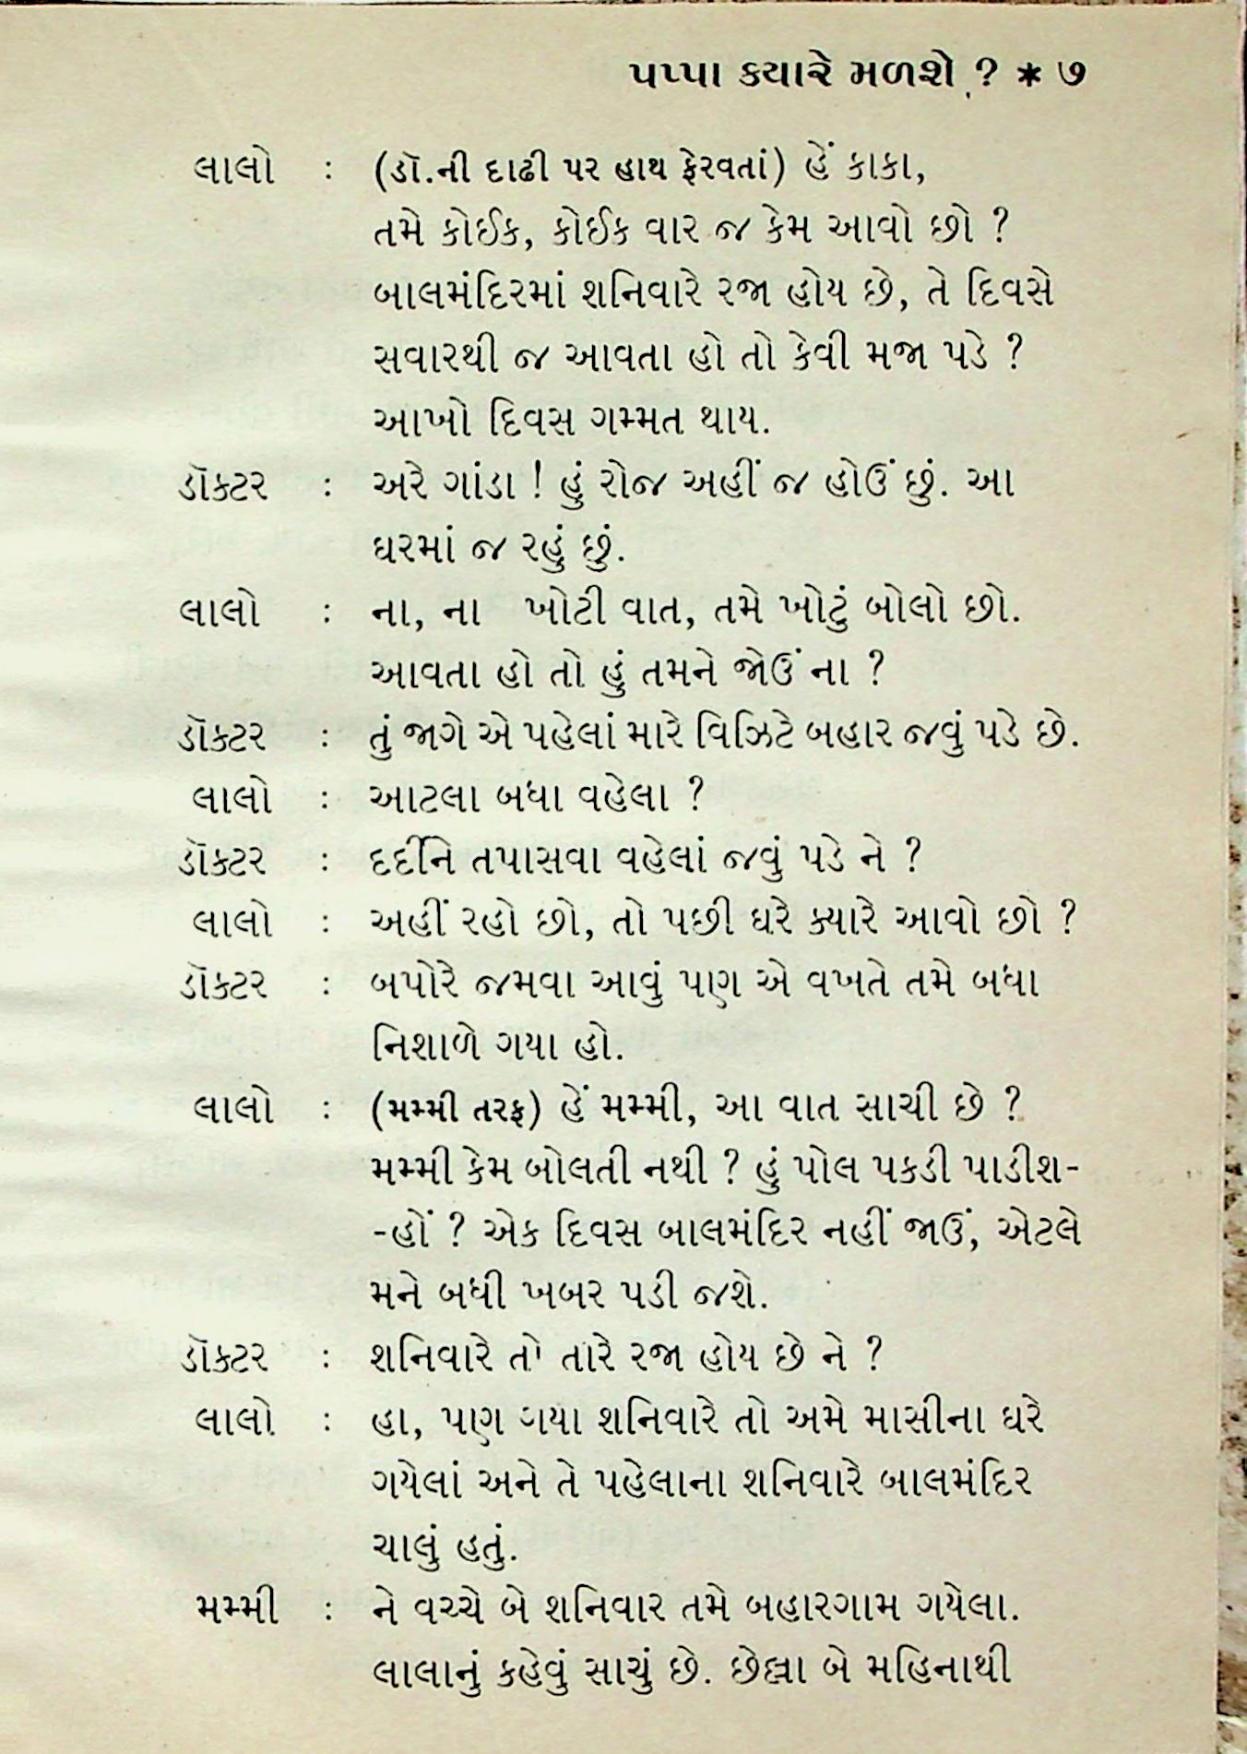 પપ્પા ક્યારે મળશે ? * ૭
લાલો : (ડૉ.ની દાઢી પર હાથ ફેરવતાં) હેં કાકા,
તમે કોઈક, કોઈક વાર જ કેમ આવો છો ?
બાલમંદિરમાં શનિવારે રજા હોય છે, તે દિવસે
સવારથી જ આવતા હો તો કેવી મજા પડે ?
આખો દિવસ ગમ્મત થાય.
ડૉક્ટર : અરે ગાંડા ! હું રોજ અહીં જ હોઉં છું. આ
ઘરમાં જ રહું છું.
લાલો : ના, ના ખોટી વાત, તમે ખોટું બોલો છો.
આવતા હો તો હું તમને જોઉં ના ?
ડૉક્ટર : તું જાગે એ પહેલાં મારે વિઝિટે બહાર જવું પડે છે.
લાલો : આટલા બધા વહેલા ?
ડૉક્ટર : દર્દીને તપાસવા વહેલાં જવું પડે ને ?
લાલો : અહીં રહો છો, તો પછી ઘરે ક્યારે આવો છો ?
ડૉક્ટર : બપોરે જમવા આવું પણ એ વખતે તમે બધા
નિશાળે ગયા હો.
લાલો : (મમ્મી તરફ) હેં મમ્મી, આ વાત સાચી છે ?
મમ્મી કેમ બોલતી નથી ? હું પોલ પકડી પાડીશ-
-હોં ? એક દિવસ બાલમંદિર નહીં જાઉં, એટલે
મને બધી ખબર પડી જશે.
ડૉક્ટર : શનિવારે તો તારે રજા હોય છે ને ?
લાલો : હા, પણ ગયા શનિવારે તો અમે માસીના ઘરે
ગયેલાં અને તે પહેલાના શનિવારે બાલમંદિર
ચાલું હતું.
મમ્મી : ને વચ્ચે બે શનિવાર તમે બહારગામ ગયેલા.
લાલાનું કહેવું સાચું છે. છેલ્લા બે મહિનાથી